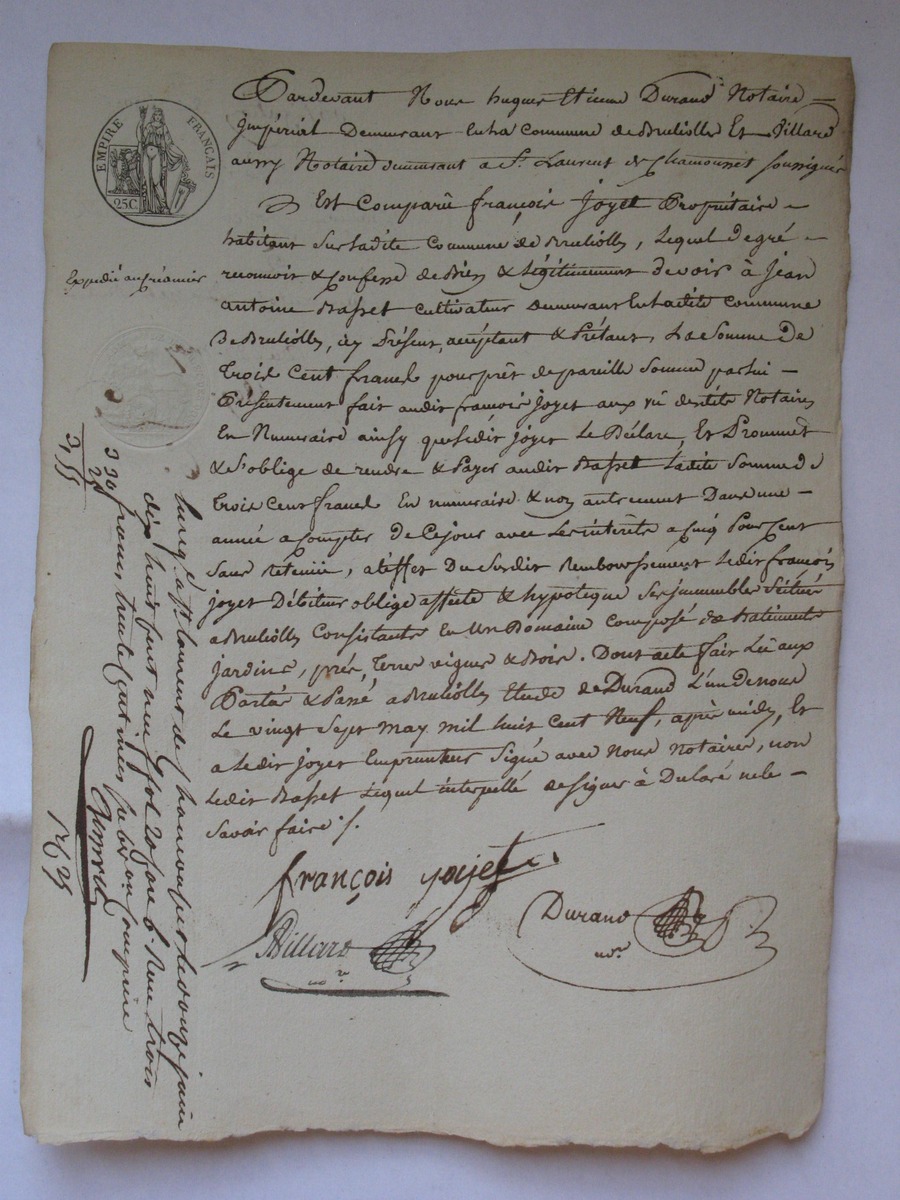 EMPIRE FRANÇAIS
25C.
Pardevant Nous hugues Etienne Durand Notaire
Impérial Demeurant En la Commune de Bruliolles Et Villard
aussy Notaire demeurant a St. Laurent de Chamousset soussignés
Est Comparû françois Joyet Propriétaire
habitant Sur ladite Commune de Bruliolles, lequel de gré
reconnoit & Confesse de Bien & Légitimement Devoir à Jean
Expédié au Créancier
antoine Basset cultivateur demeurant En ladite Commune
De Bruliolles, icy Présent, acceptant & Prêtant, La Somme De
trois Cent francs pour prêt de pareille Somme par lui
Présentement fait audit françois Joyet aux vu desdits Notaires
En Numéraire ainsy que ledit Joyet Le Déclare, Et Prommet
& S'oblige de rendre & Payer audit Basset Ladite Somme De
trois Cent francs En numéraire & non autrement Dans une
année a Compter de Ce jour avec Les intérêts a Cinq Pour Cent
Sans Retenue, a l'effet Du Susdit Remboursement Ledit françois
joyet Débiteur oblige affecte & hypotèque Ses immeubles Scitués
a Brulioles Consistants En Un Domaine Composé de Batiments
Jardins, prés, terres vignes & Bois. Dont acte fait Lû aux
Parties & Passé a Brulioles Etude de Durand L'un de nous
Le vingt Sept may mil huit Cent Neuf, après midy, Et
a Ledit Joyet Emprunteur Signé avec Nous Notaires, non
Ledit Basset Lequel interpellé de signer à Déclaré ne le
Savoir faire ./.
françois joyet
Villard
no.re
Durand
no.re
Enreg. a St. Laurent de Chamousset le onze juin
dix huit cent neuf fol. 20 fare 6. Reçu trois
francs trente centimes Subvon Comprise
3 30
25
3,55